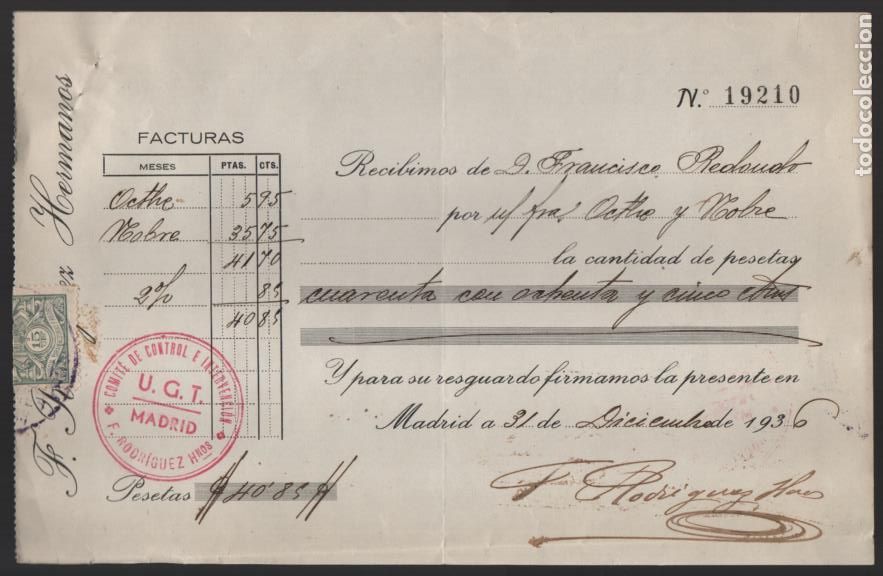 todocoleccion
N.º 19210
F. Hermanos
FACTURAS
MESES PTAS. CTS.
Octbe 5 95
Nobre 35 75
41 70
2% 85
40 85
Recibimos de D. Francisco Redondo
por s/ fra/ Octbe y Nobre
la cantidad de pesetas
cuarenta con ochenta y cinco ctms
Y para su resguardo firmamos la presente en
Madrid a 31 de Diciembre de 1936
F. Rodríguez Hnos
Pesetas # 40'85 #
COMITÉ DE CONTROL E INTERVENCIÓN
U. G. T.
MADRID
F. RODRÍGUEZ HNOS
15